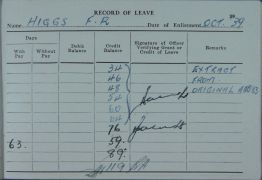 RECORD OF LEAVE
Name. HIGGS F.R Date of Enlistment. OCT. 39
Days
With Pay Without Pay Debit Balance Credit Balance Signature of Officer Verifying Grant or Credit of Leave Remarks
34 EXTRACT
46 FROM
48 ORIGINAL
54
60
64
76
63. 59.
89.
119